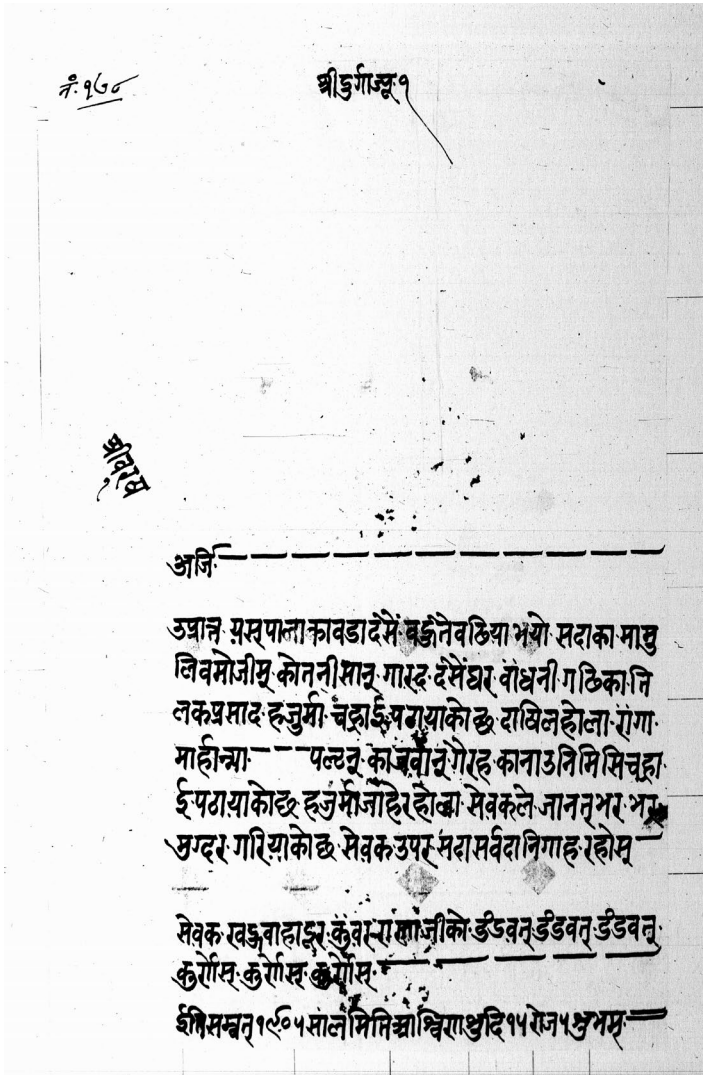 नं. १७०
श्रीदुर्गाज्यू. १
अर्जि
उप्रान्त यसपाला का वडादसै वहुतै वढिया भयो सदाका मामु
लि वमोजीम् कोतनीसानु गारद दसैंघर वाधनी गठिका ति
लक प्रसाद हजुर्मा चह्राई पठायाको छ दाषिल होला रागा
माहान्मा - - - पल्टनु का जवान् गैरह का नाउनिमि सि चह्रा
ई पठायाको छ हजुर्मा जाहेर होला सेवकले जानत् भर भर
मुग्दर गरियाको छ सेवक उपर सदा सर्वदा निगाह रहोस्
सेवक खड्गवाहादूर कुंवर राणाजीको डंडवत् डंडवत् डंडवत्
कुर्णेस् कुर्णेस् कुर्णेस्
ईति सम्वत् १९०५ साल मिति आश्विण शुदि १५ रोज ५ शुभम्